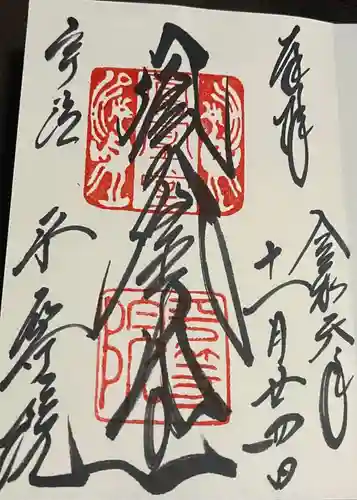 奉拝
令和元年
十一月廿四日
鳳凰堂
宇治
平等院